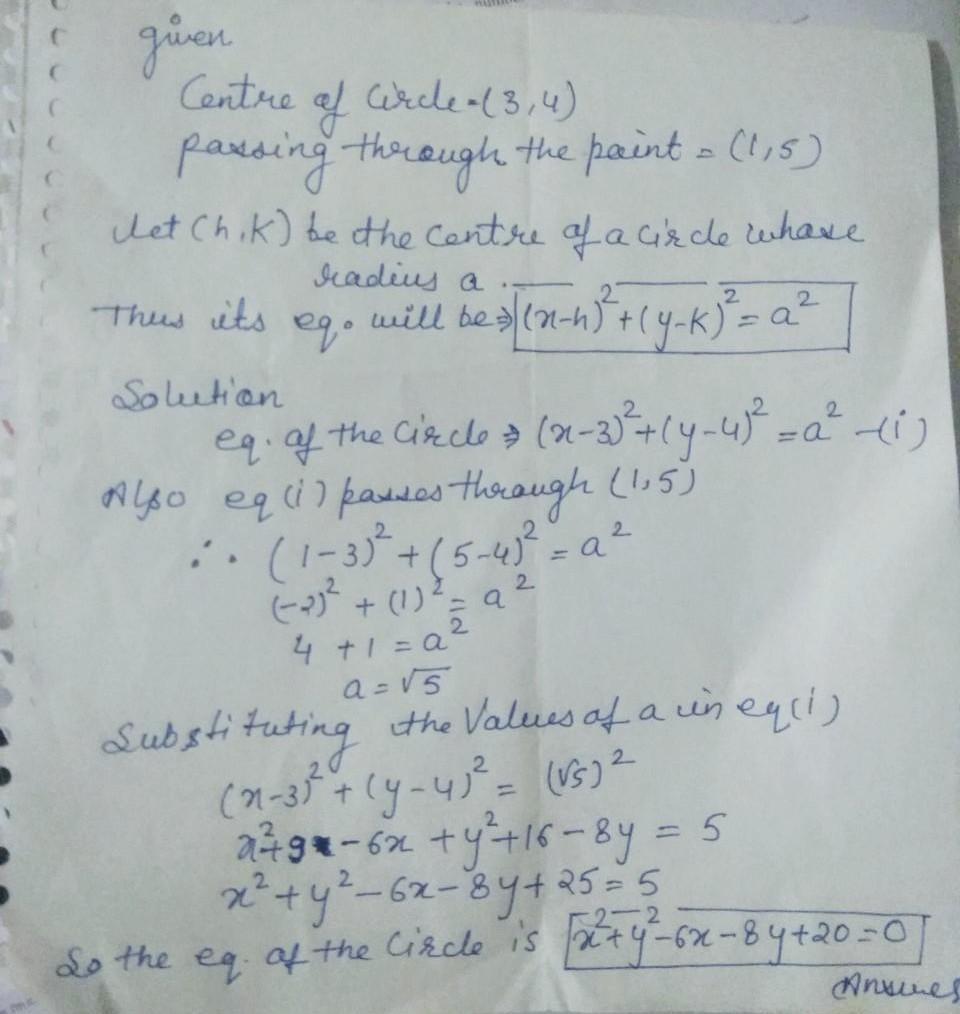 given
Centre of Circle = (3,4)
passing through the point = (1,5)
Let (h,k) be the centre of a circle whose
radius a.
Thus its eq. will be ⇒ (x-h)²+(y-k)² = a²
Solution
eq. of the circle ⇒ (x-3)²+(y-4)² = a² -(i)
Also eq (i) passes through (1,5)
∴ (1-3)² + (5-4)² = a²
(-2)² + (1)² = a²
4 + 1 = a²
a = √5
Substituting the Values of a in eq (i)
(x-3)² + (y-4)² = (√5)²
x²+9-6x + y²+16-8y = 5
x²+y²-6x-8y+25 = 5
So the eq. of the Circle is x²+y²-6x-8y+20=0
Answer